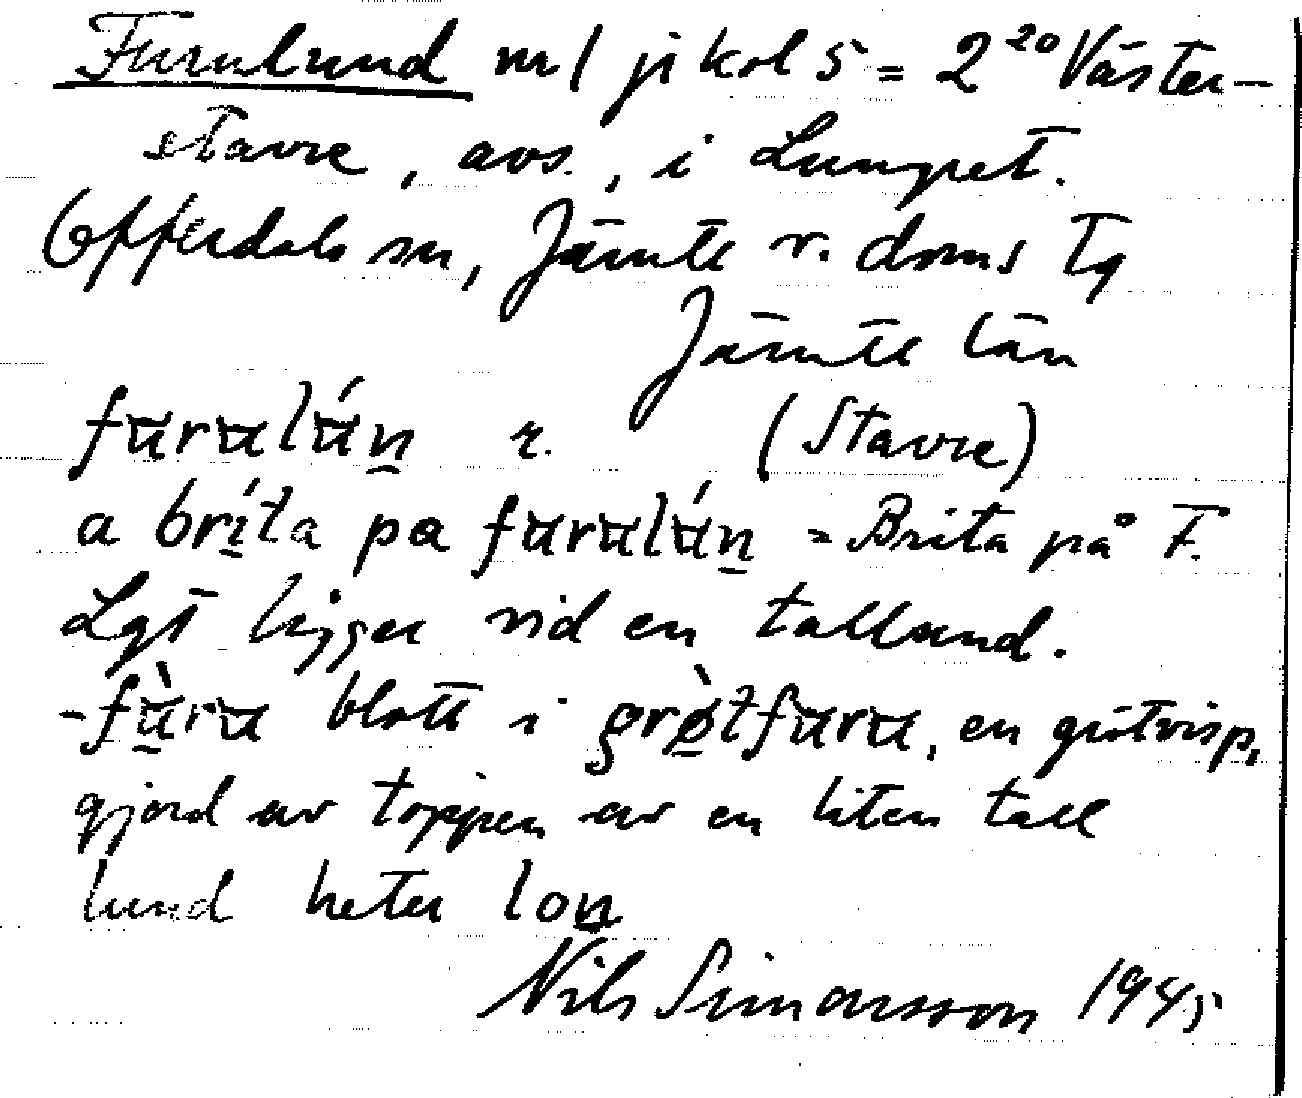 Furulund nr 1 ji kol 5 = 2²⁰ Väster-
stavre, avs., i Lungret.
Offerdals sn, Jämtl v. doms Tg
Jämtl län
furulún r. (Stavre)
a bríta pa furulún = Brita på F.
Lgt ligger vid en tallund.
-fùru blott i grø̀tfuru, en grötvisp,
gjord av toppen av en liten tall
lund heter lon
Nils Simonsson 1945